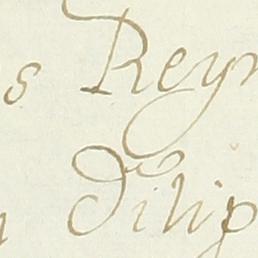 s Reyn
Dilip